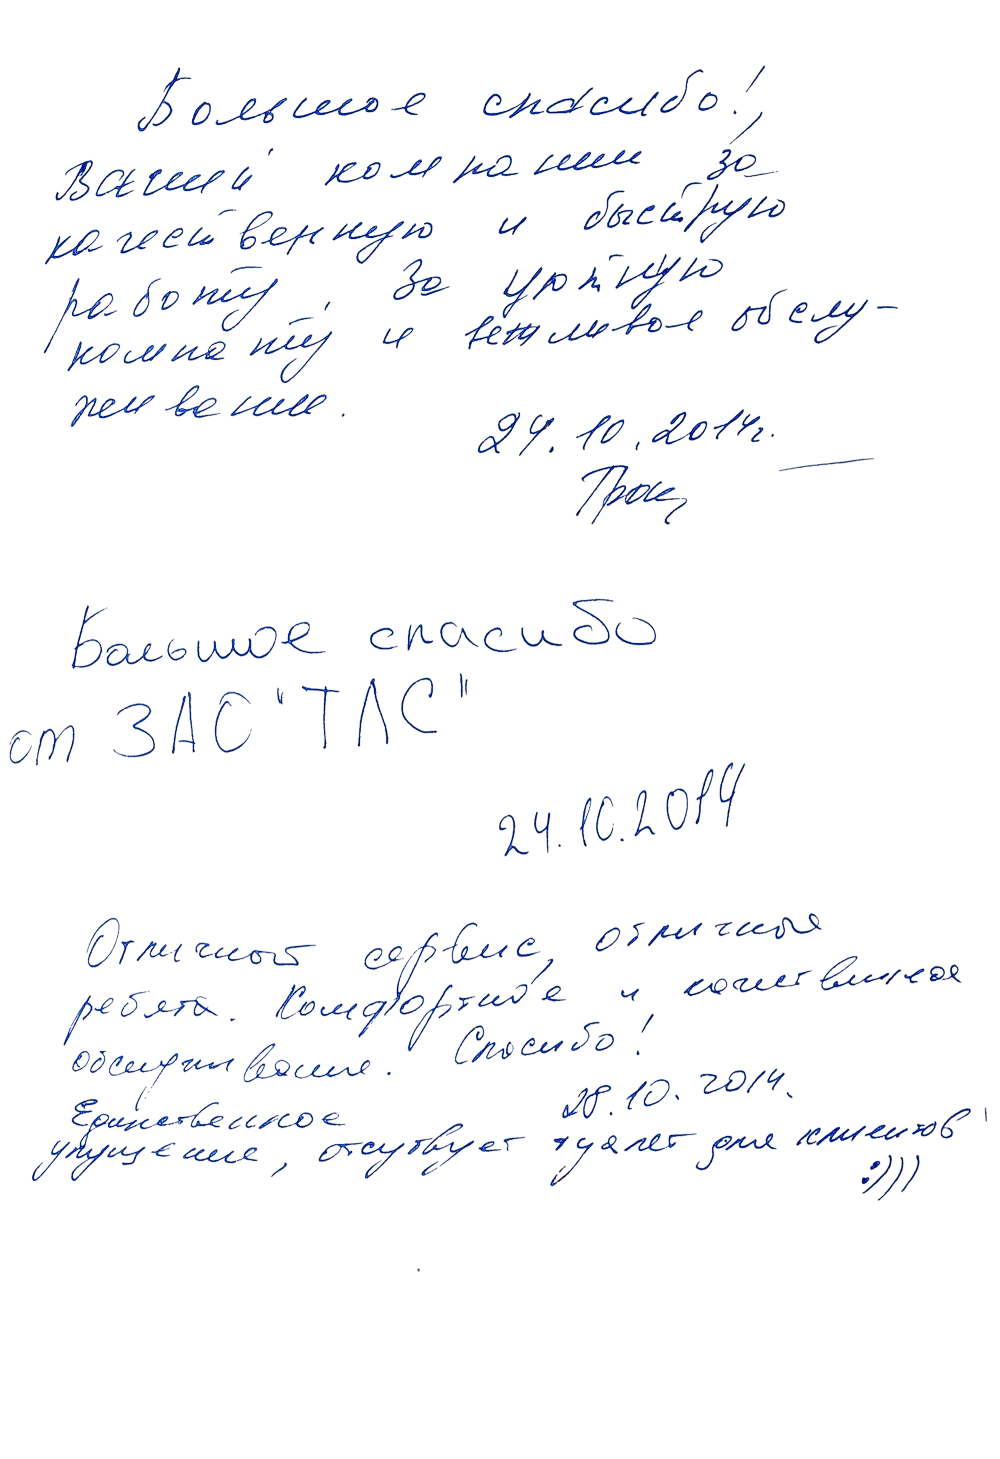 Большое спасибо!,
Вашей компании за
качественную и быструю
работу, за уютную
комнату и вежливое обслу-
живание.
24.10.2014г.
Большое спасибо
от ЗАС "ТЛС"
24.10.2014
Отличный сервис, отличные
ребята. Комфортное и качественное
обслуживание. Спасибо!
28.10.2014.
Единственное
упущение, отсутвует туалет для клиентов
:)))